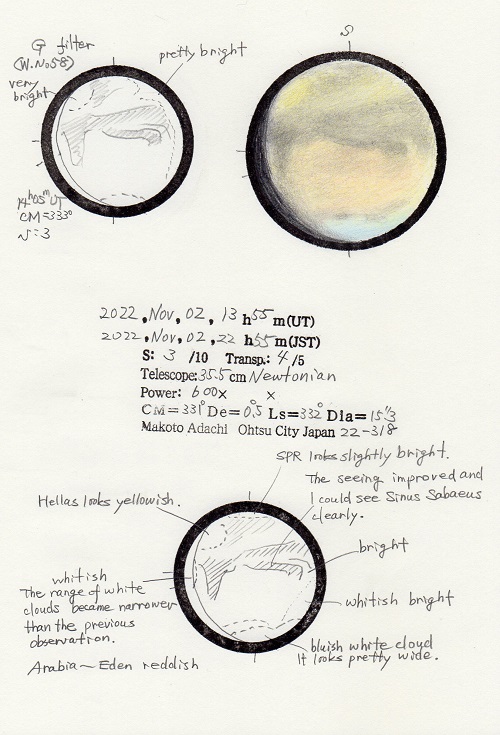 G filter
(W.No58)
very
bright
pretty bright
S
14h05m UT
CM=333°
2022, Nov, 02, 13 h55 m(UT)
2022, Nov, 02, 22 h55 m(JST)
S: 3 /10 Transp.: 4 /5
Telescope: 35.5 cm Newtonian
Power: 600× ×
CM=331° De=0°.5 Ls=332° Dia=15".3
Makoto Adachi Ohtsu City Japan 22-318
SPR looks slightly bright.
The seeing improved and
I could see Sinus Sabaeus
clearly.
Hellas looks yellowish.
bright
whitish
The range of white
clouds became narrower
than the previous
observation.
whitish bright
bluish white cloud
It looks pretty wide.
Arabia~Eden reddish